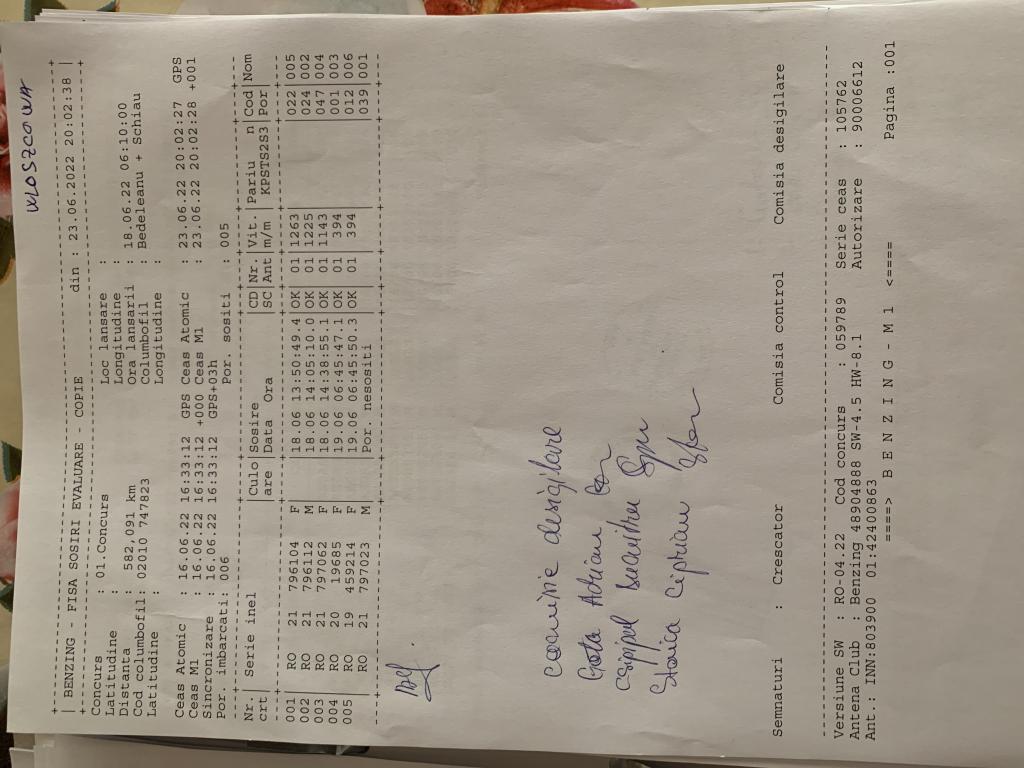 WLOSZCOWA
| BENZING - FISA SOSIRI EVALUARE - COPIE din : 23.06.2022 20:02:38 |
Concurs : 01.Concurs Loc lansare :
Latitudine : Longitudine :
Distanta : 582,091 km Ora lansarii : 18.06.22 06:10:00
Cod columbofil: 02010 747823 Columbofil : Bedeleanu + Schiau
Latitudine : Longitudine :
Ceas Atomic : 16.06.22 16:33:12 GPS Ceas Atomic : 23.06.22 20:02:27 GPS
Ceas M1 : 16.06.22 16:33:12 +000 Ceas M1 : 23.06.22 20:02:28 +001
Sincronizare : 16.06.22 16:33:12 GPS+03h
Por. imbarcati: 006 Por. sositi : 005
Nr.| Serie inel |Culo|Sosire |CD|Nr.|Vit.|Pariu n|Cod|Nom
crt| |are |Data Ora |SC|Ant|m/m |KPSTS2S3|Por|
001| RO 21 796104 F |18.06 13:50:49.4|OK| 01|1263| |022|005
002| RO 21 796112 M |18.06 14:05:10.0|OK| 01|1225| |024|002
003| RO 21 797062 F |18.06 14:38:55.1|OK| 01|1143| |047|004
004| RO 20 19685 F |19.06 06:45:47.1|OK| 01| 394| |001|003
005| RO 19 459214 F |19.06 06:45:50.3|OK| 01| 394| |012|006
| RO 21 797023 M |Por. nesositi | | | | |039|001
comisie desigilare
Gota Adrian
Stanca Ciprian
Semnaturi : Crescator Comisia control Comisia desigilare
Versiune SW : RO-04.22 Cod concurs : 059789 Serie ceas : 105762
Antena Club : Benzing 48904888 SW-4.5 HW-8.1 Autorizare : 90006612
Ant.: INN:803900 01:42400863
====> B E N Z I N G - M 1 <==== Pagina :001